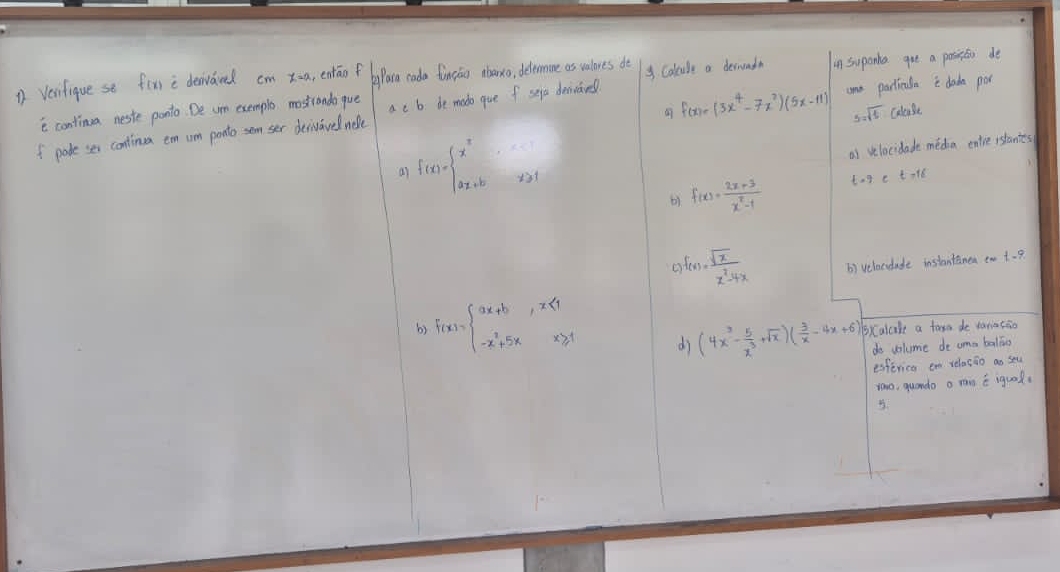 1) Verifique se f(x) é derivável em x=a, então f
é contínua neste ponto. De um exemplo mostrando que
f pode ser contínua em um ponto sem ser derivável nele
2) Para cada função abaixo, determine os valores de
a e b de modo que f seja derivável
a) f(x)= { x² ,
ax+b x≥1
b) f(x)= { ax+b , x<1
-x²+5x x≥1
3) Calcule a derivada
a) f(x)=(3x⁴-7x²)(5x-11)
b) f(x)= (2x+3)/(x²-1)
c) f(x)= √x/(x²-4x)
d) (4x³ - 5/x³ + √x)(3/x - 4x+6)
4) Suponha que a posição de
uma partícula é dada por
s=√t. Calcule
a) velocidade média entre istantes
t=9 e t=16
b) velocidade instantânea em t=9.
5) Calcule a taxa de variação
do volume de uma balão
esférico em relação ao seu
raio, quando o raio é igual a
5.